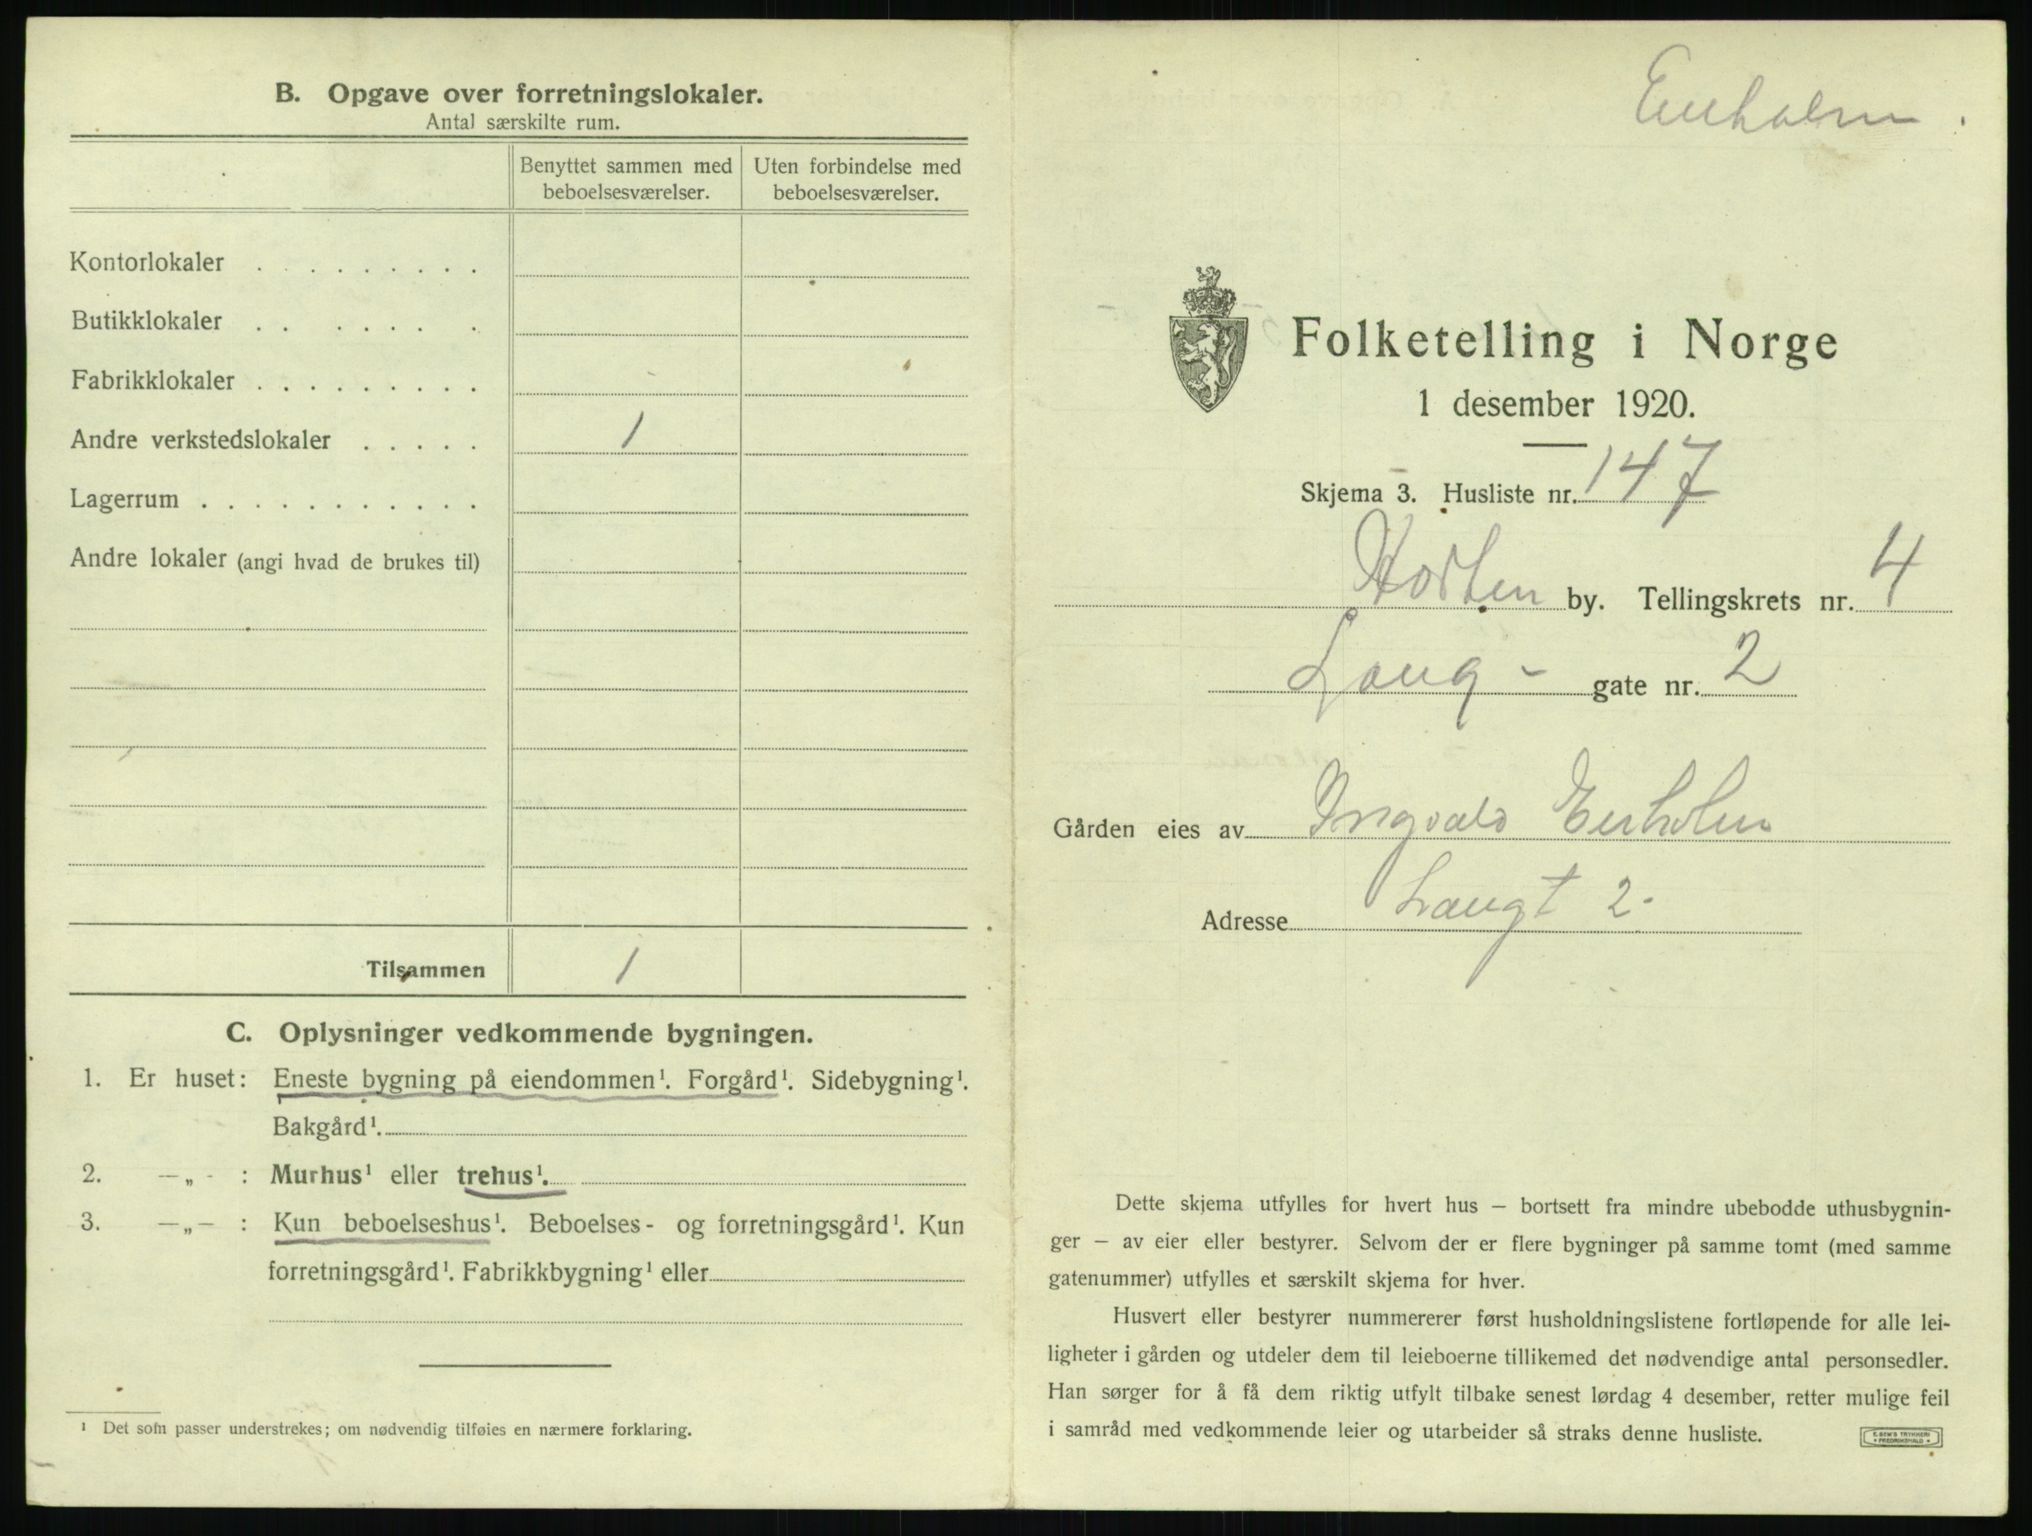 B. Opgave over forretningslokaler.
Antal særskilte rum.
Benyttet sammen med beboelsesværelser.
Uten forbindelse med beboelsesværelser.
Kontorlokaler . . . . . . . . .
Butikklokaler . . . . . . .
Fabrikklokaler . . . . . . . . .
Andre verkstedslokaler . . . . . 1
Lagerrum . . . . . . . . . . .
Andre lokaler (angi hvad de brukes til)
Tilsammen 1
C. Oplysninger vedkommende bygningen.
1. Er huset: Eneste bygning på eiendommen¹. Forgård¹. Sidebygning¹.
Bakgård¹.
2. —„— : Murhus¹ eller trehus¹.
3. —„— : Kun beboelseshus¹. Beboelses- og forretningsgård¹. Kun
forretningsgård¹. Fabrikkbygning¹ eller
¹ Det som passer understrekes; om nødvendig tilføies en nærmere forklaring.
Folketelling i Norge
1 desember 1920.
Skjema 3. Husliste nr. 147
Horten by. Tellingskrets nr. 4
Lang - gate nr. 2
Gården eies av Ingvald
Adresse Langt 2.
Dette skjema utfylles for hvert hus — bortsett fra mindre ubebodde uthusbygnin-
ger — av eier eller bestyrer. Selvom der er flere bygninger på samme tomt (med samme
gatenummer) utfylles et særskilt skjema for hver.
Husvert eller bestyrer nummererer først husholdningslistene fortløpende for alle lei-
ligheter i gården og utdeler dem til leieboerne tillikemed det nødvendige antal personsedler.
Han sørger for å få dem riktig utfylt tilbake senest lørdag 4 desember, retter mulige feil
i samråd med vedkommende leier og utarbeider så straks denne husliste.
E. SEM'S TRYKKERI
FREDRIKSHALD